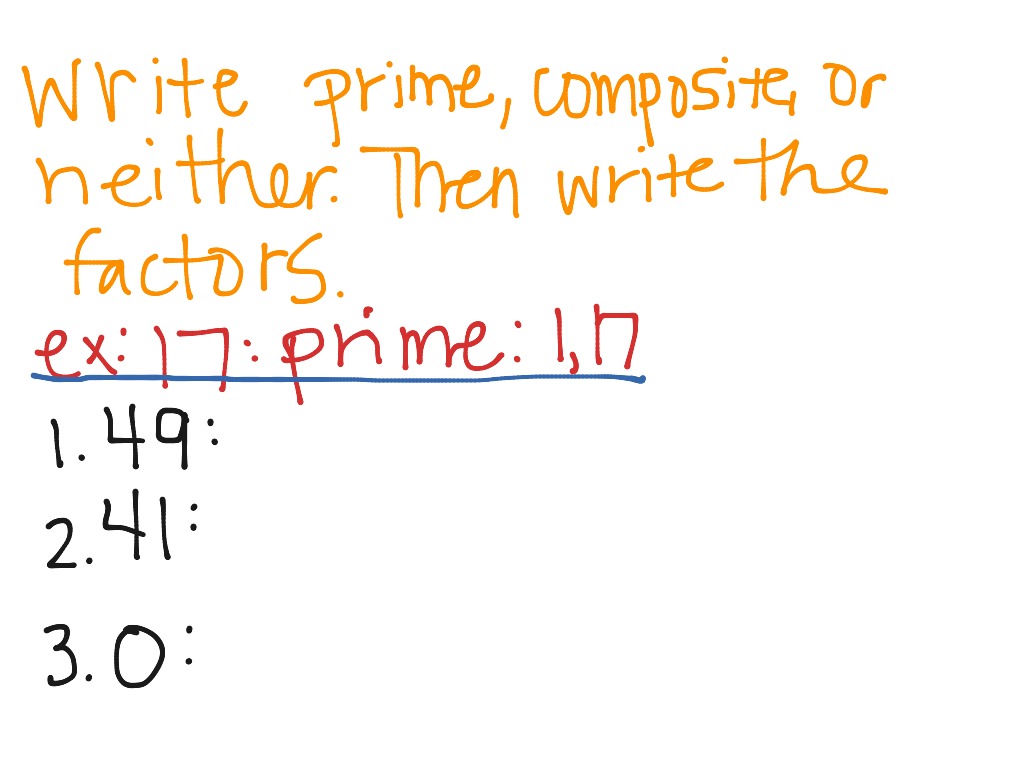 Write prime, composite, or
neither. Then write the
factors.
ex: 17: prime: 1, 17
1. 49:
2. 41:
3. 0: